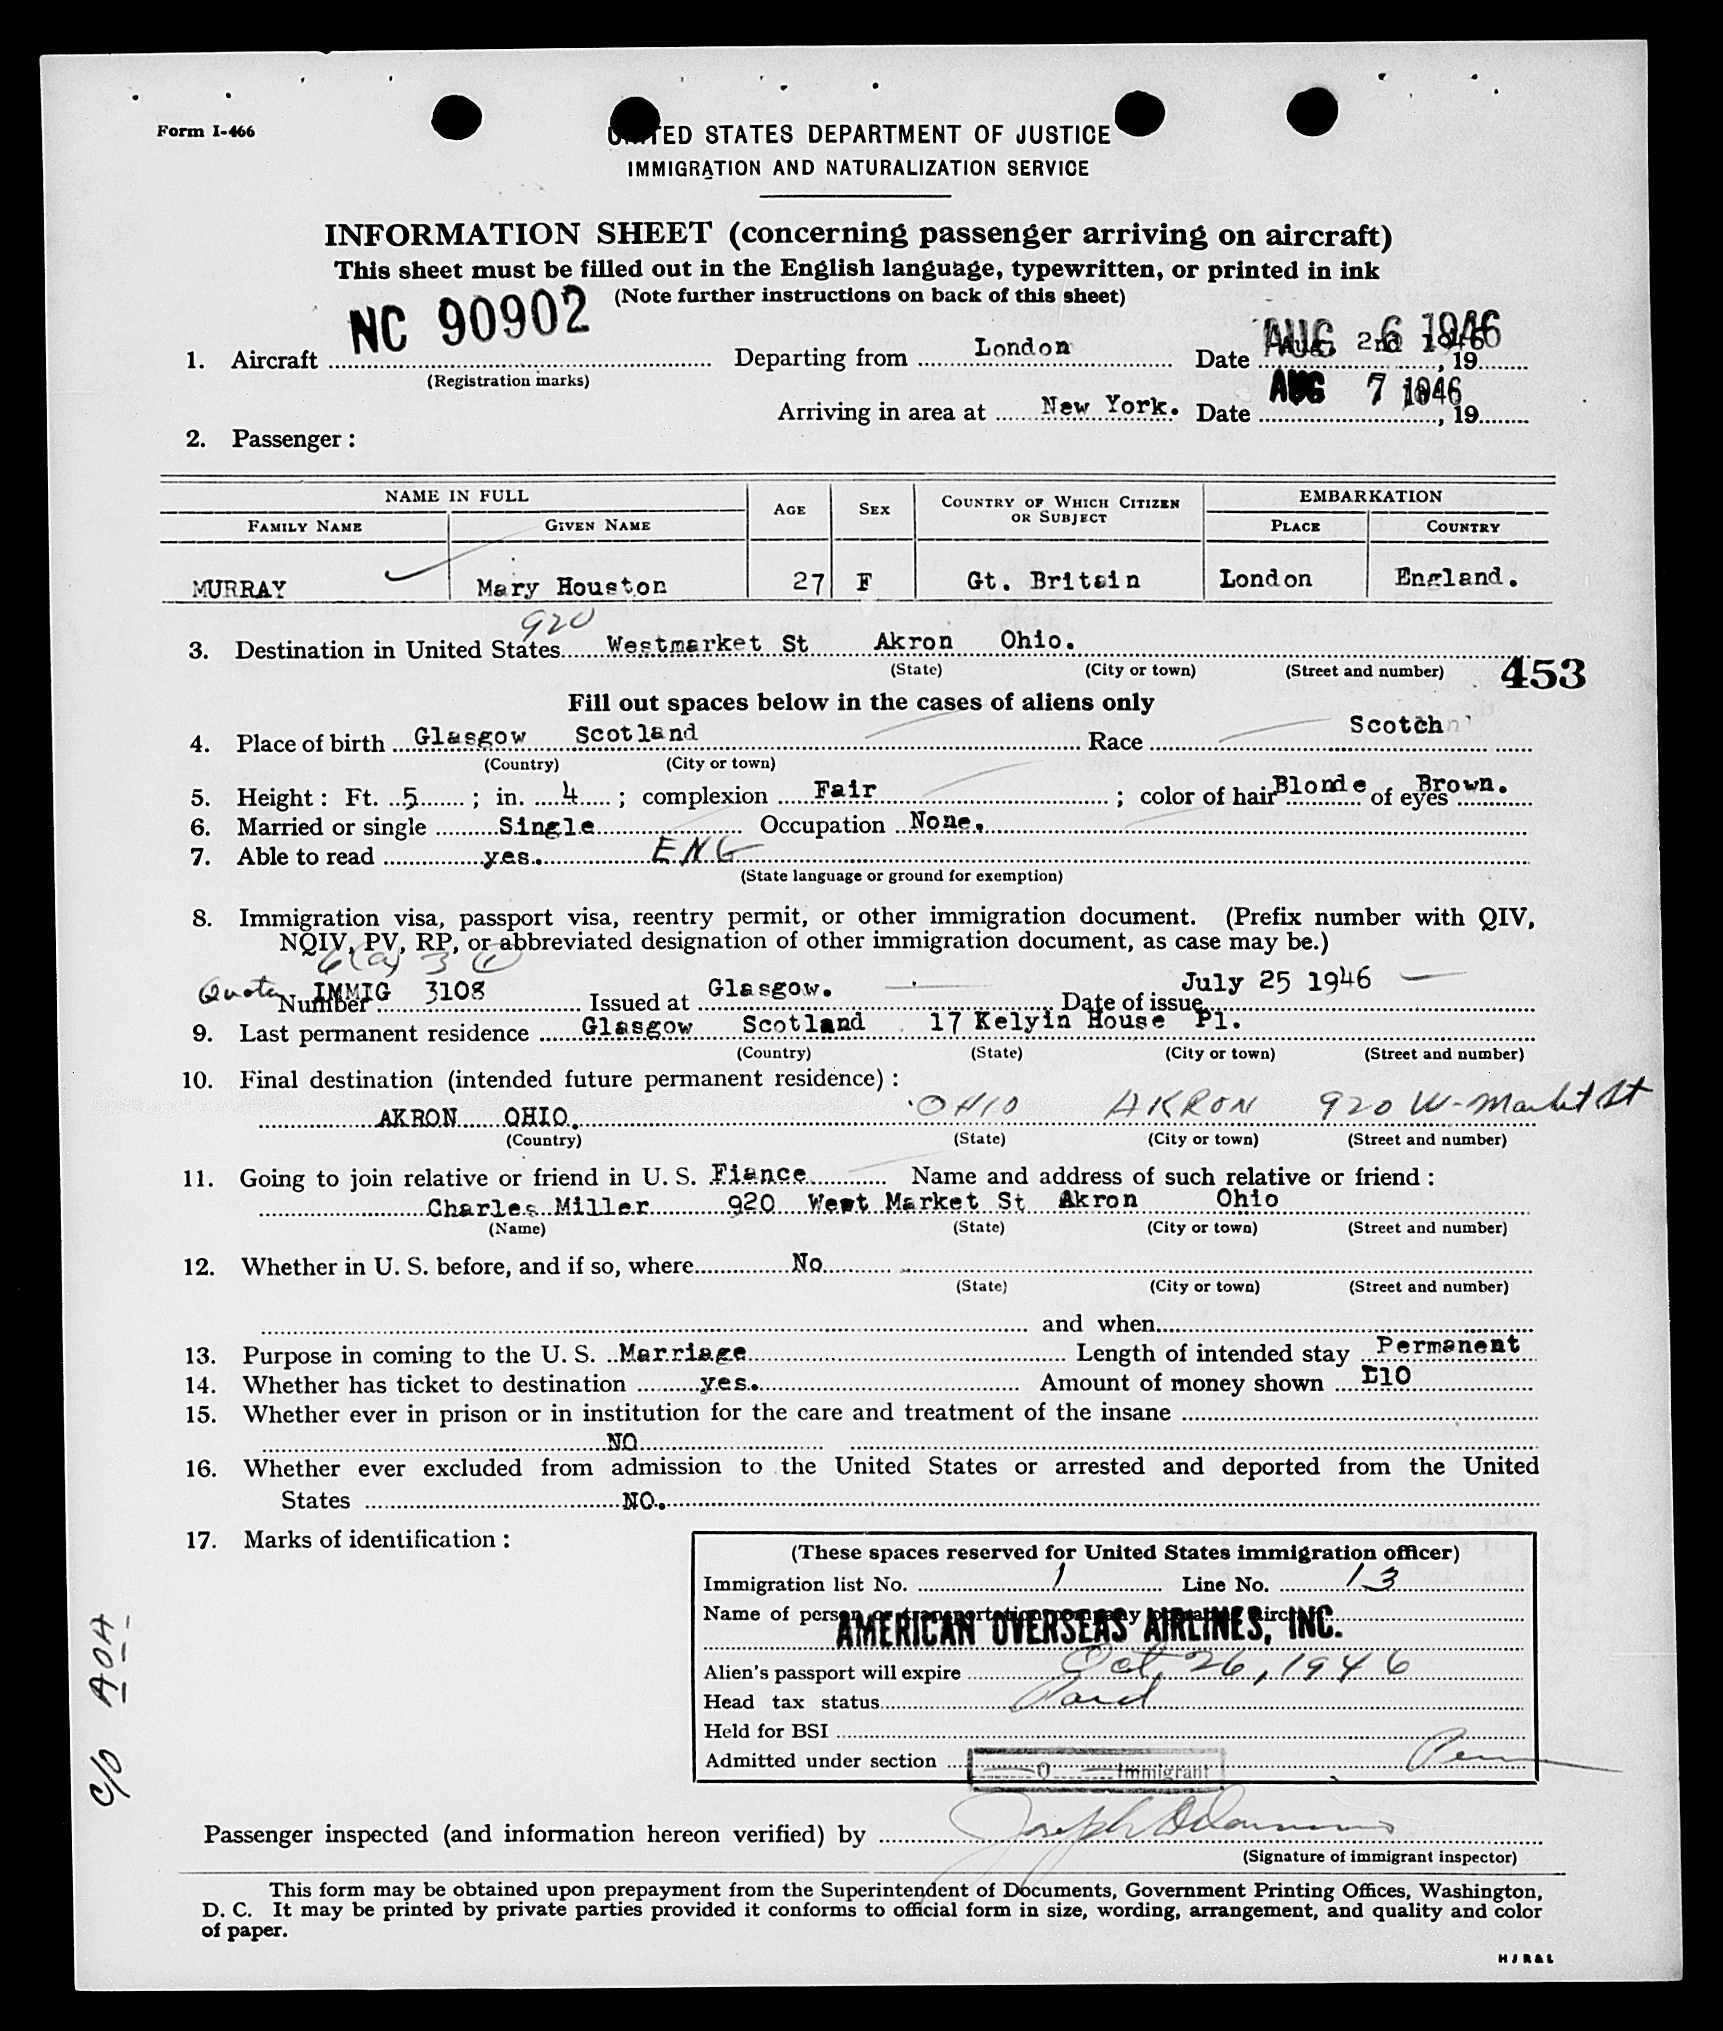 Form I-466
UNITED STATES DEPARTMENT OF JUSTICE
IMMIGRATION AND NATURALIZATION SERVICE
INFORMATION SHEET (concerning passenger arriving on aircraft)
This sheet must be filled out in the English language, typewritten, or printed in ink
(Note further instructions on back of this sheet)
1. Aircraft NC 90902 Departing from London Date AUG 6 1946, 19
(Registration marks)
Arriving in area at New York. Date AUG 7 1946, 19
2. Passenger:
NAME IN FULL AGE SEX COUNTRY OF WHICH CITIZEN OR SUBJECT EMBARKATION
FAMILY NAME GIVEN NAME PLACE COUNTRY
MURRAY Mary Houston 27 F Gt. Britain London England.
920
3. Destination in United States Westmarket St Akron Ohio.
(State) (City or town) (Street and number) 453
Fill out spaces below in the cases of aliens only
4. Place of birth Glasgow Scotland Race Scotch
(Country) (City or town)
5. Height: Ft. 5; in. 4; complexion Fair; color of hair Blonde of eyes Brown.
6. Married or single Single Occupation None.
7. Able to read yes. ENG
(State language or ground for exemption)
8. Immigration visa, passport visa, reentry permit, or other immigration document. (Prefix number with QIV,
NQIV, PV, RP, or abbreviated designation of other immigration document, as case may be.)
Quota Number IMMIG 3108 Issued at Glasgow. Date of issue July 25 1946
9. Last permanent residence Glasgow Scotland 17 Kelvin House Pl.
(Country) (State) (City or town) (Street and number)
10. Final destination (intended future permanent residence):
AKRON OHIO. OHIO AKRON 920 W. Market St
(Country) (State) (City or town) (Street and number)
11. Going to join relative or friend in U. S. Fiance Name and address of such relative or friend:
Charles Miller 920 West Market St Akron Ohio
(Name) (State) (City or town) (Street and number)
12. Whether in U. S. before, and if so, where No
(State) (City or town) (Street and number)
and when
13. Purpose in coming to the U. S. Marriage Length of intended stay Permanent
14. Whether has ticket to destination yes. Amount of money shown £10
15. Whether ever in prison or in institution for the care and treatment of the insane
NO
16. Whether ever excluded from admission to the United States or arrested and deported from the United
States NO.
17. Marks of identification:
(These spaces reserved for United States immigration officer)
Immigration list No. 1 Line No. 13
Name of person or transportation company operating aircraft
AMERICAN OVERSEAS AIRLINES, INC.
Alien's passport will expire Oct, 26, 1946
Head tax status Paid
Held for BSI
Admitted under section Immigrant
c/o AOA
Passenger inspected (and information hereon verified) by Joseph
(Signature of immigrant inspector)
This form may be obtained upon prepayment from the Superintendent of Documents, Government Printing Offices, Washington,
D. C. It may be printed by private parties provided it conforms to official form in size, wording, arrangement, and quality and color
of paper.
H J R & L